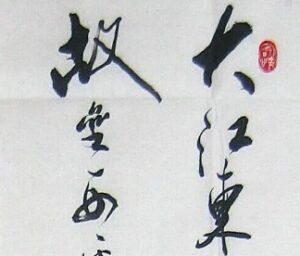 大江東
故壘西